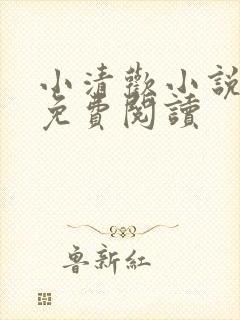 小清歡小說
免費閱讀
魯新紅